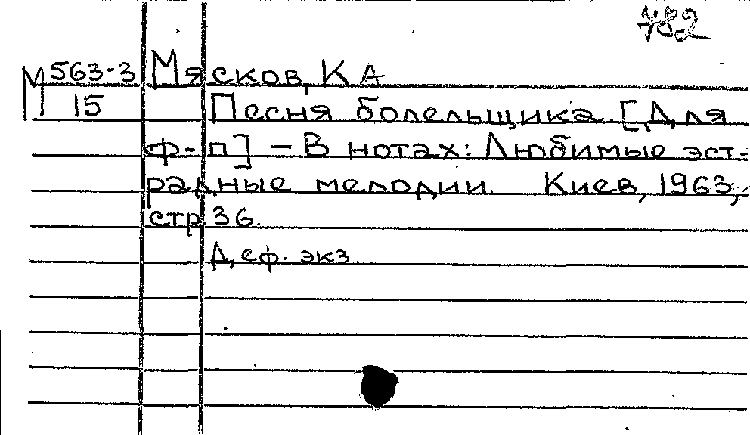 782
М 563-3 Мясков, К А
15 Песня болельщика. [Для
ф-п] – В нотах: Любимые эст-
радные мелодии. Киев, 1963,
стр. 36.
Д, еф. экз.